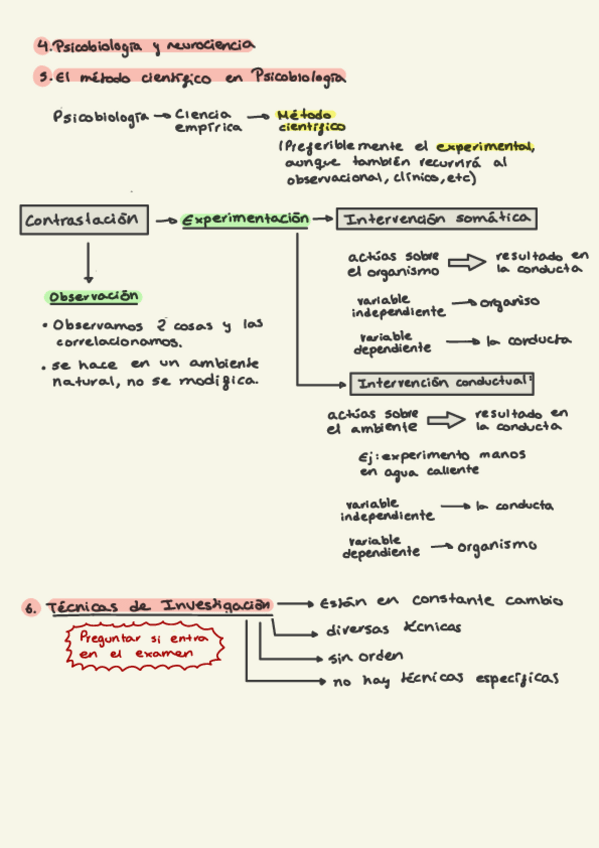 4. Psicobiología y neurociencia
5. El método científico en Psicobiología
Psicobiología → Ciencia empírica → Método científico
(Preferiblemente el experimental,
aunque también recurrirá al
observacional, clínico, etc)
Contrastación → Experimentación → Intervención somática
actúas sobre
el organismo
resultado en
la conducta
variable
independiente → organiso
variable
dependiente → la conducta
Observación
• Observamos 2 cosas y las
correlacionamos.
• se hace en un ambiente
natural, no se modifica.
Intervención conductual:
actúas sobre
el ambiente
resultado en
la conducta
Ej: experimento manos
en agua caliente
variable
independiente → la conducta
variable
dependiente → organismo
6. Técnicas de Investigación → Están en constante cambio
diversas técnicas
sin orden
no hay técnicas específicas
Preguntar si entra
en el examen